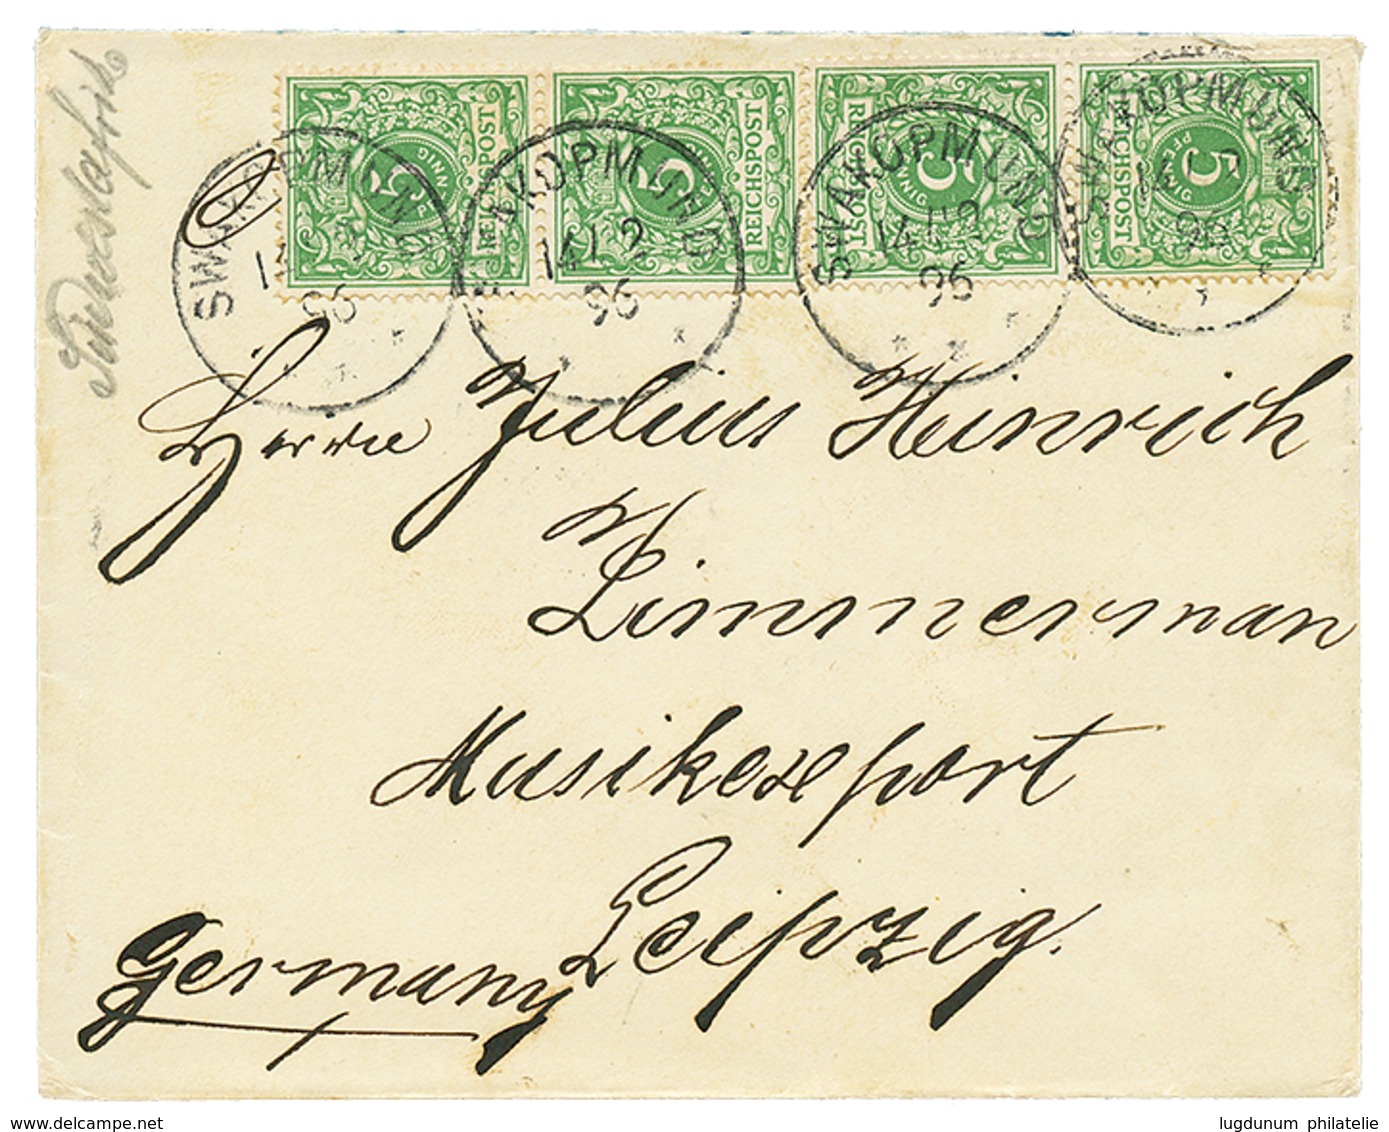 Südwestafrika
5 PFENNIG REICHSPOST
5 PFENNIG REICHSPOST
5 PFENNIG REICHSPOST
5 PFENNIG REICHSPOST
SWAKOPMUND 14 12 96
SWAKOPMUND 14 12 96
SWAKOPMUND 14 12 96
SWAKOPMUND 14 12 96
Herrn Julius Heinrich
Zimmerman
Musikexport
Leipzig.
Germany
lugdunum philatelie